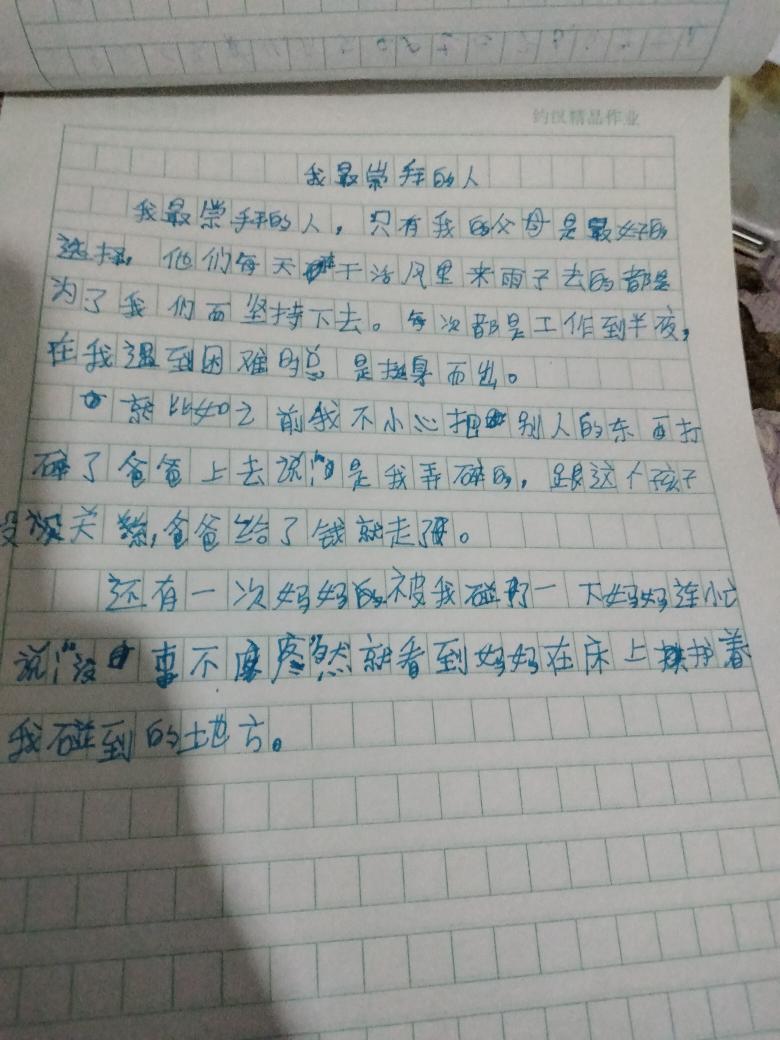 钧仪精品作业
我最崇拜的人
我最崇拜的人，只有我的父母是最好的
选择，他们每天干活风里来雨子去的都是
为了我们而坚持下去。每次都是工作到半夜，
在我遇到困难时总是挺身而出。
就比如之前我不小心把别人的东西打
碎了爸爸上去说“是我弄碎的，跟这个孩子
没关系，爸爸给了钱就走了。
还有一次妈妈的被我碰了一下妈妈连忙
说“没事不疼”然就看到妈妈在床上捂着
我碰到的地方。